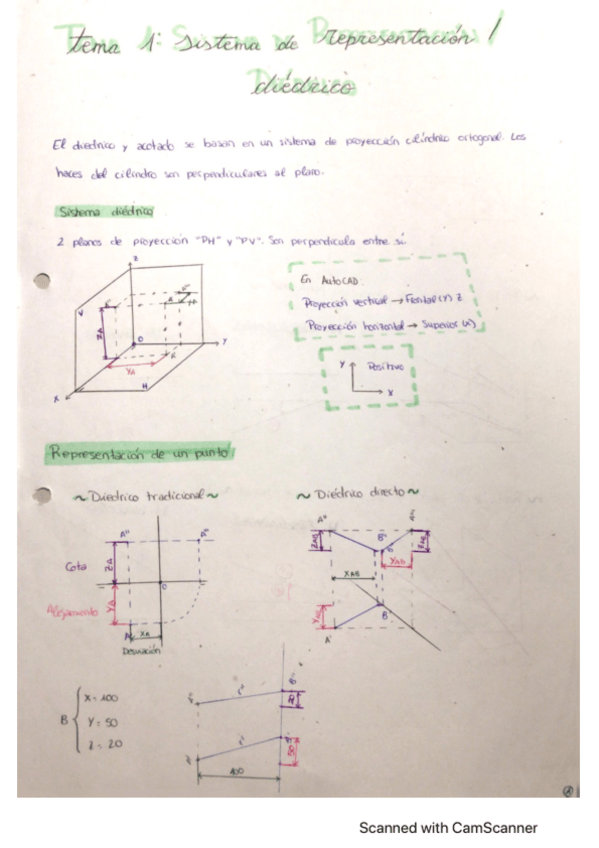 Tema 1: Sistema de Representación /
diédrico
El diedrico y acotado se basan en un sistema de proyección cilíndrico ortogonal. Los
haces del cilindro son perpendiculares al plano.
Sistema diédrico
2 planos de proyección "PH" y "PV". Son perpendicula entre sí
En AutoCAD:
Proyección vertical → Frontal (Y) Z
Proyección horizontal → Superior
Y Positivo
X
Z
V
ZA
A
O
Y
YA
H
X
Representación de un punto
~ Diedrico tradicional ~
~ Diédrico directo ~
A''
Cota ZA
O
Alejamiento YA
A' XA
Desviación
A''
ZAB
B''
YAB
ZAB
XAB
YAB
B'
A'
B { X = 100
Y = 50
Z = 20
B''
20
50
100
Scanned with CamScanner